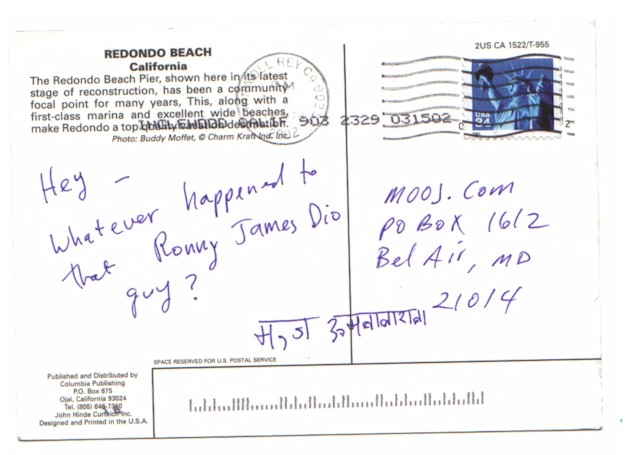 REDONDO BEACH
California
The Redondo Beach Pier, shown here in its latest
stage of reconstruction, has been a community
focal point for many years, This, along with a
first-class marina and excellent wide beaches,
make Redondo a top quality vacation destination.
Photo: Buddy Moffet, © Charm Kraft Ind. Inc.
2US CA 1522/T-955
USA
34
903 2329 031502
Hey -
whatever happened to
that Ronny James Dio
guy?
MOOJ.Com
PO BOX 1612
Bel Air, MD
21014
SPACE RESERVED FOR U.S. POSTAL SERVICE
Published and Distributed by
Columbia Publishing
P.O. Box 675
Ojai, California 93024
John Hinde Curteich Inc.
Designed and Printed in the U.S.A.